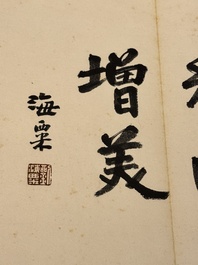 增美
海粟